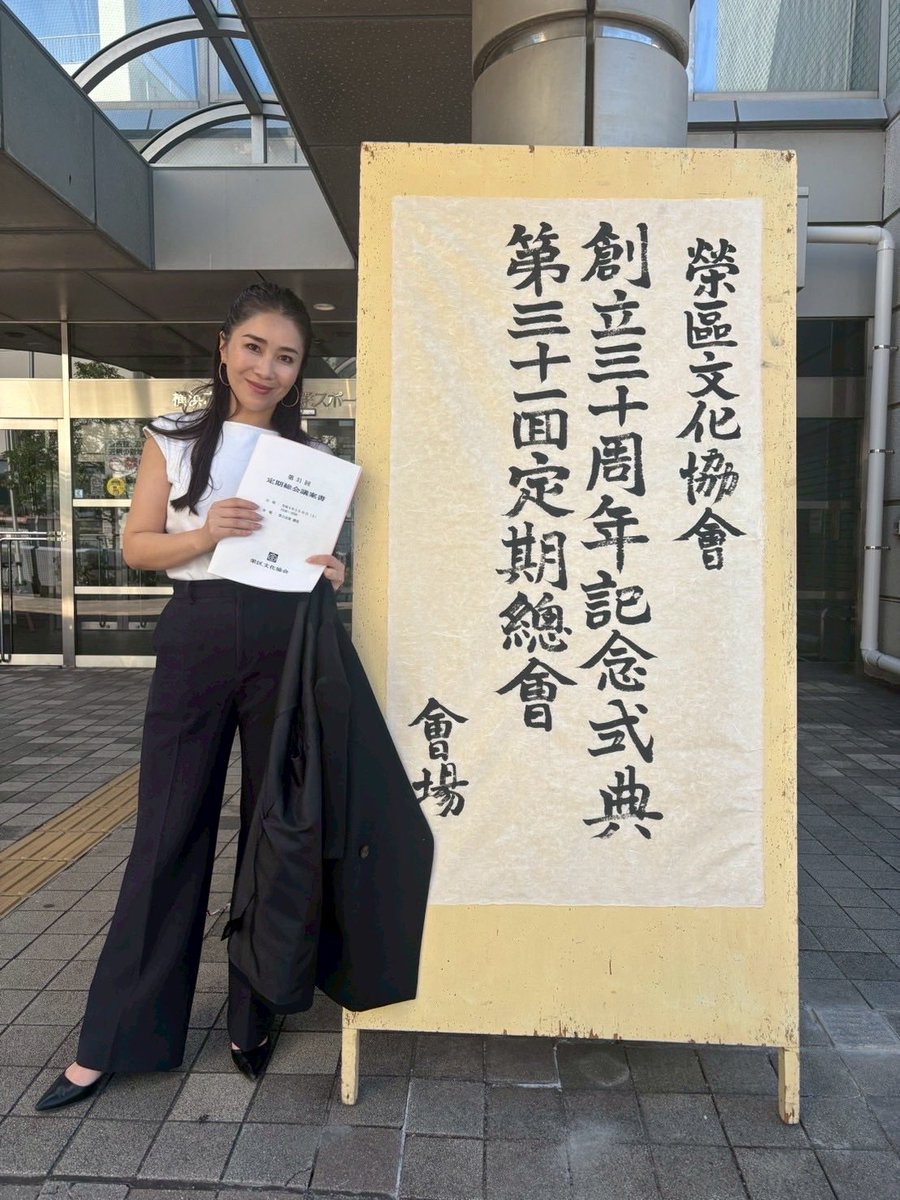 榮區文化協會
創立三十周年記念式典
第三十一回定期總會
會場
第31回
定期総会議案書
栄区文化協会
横浜
スポー